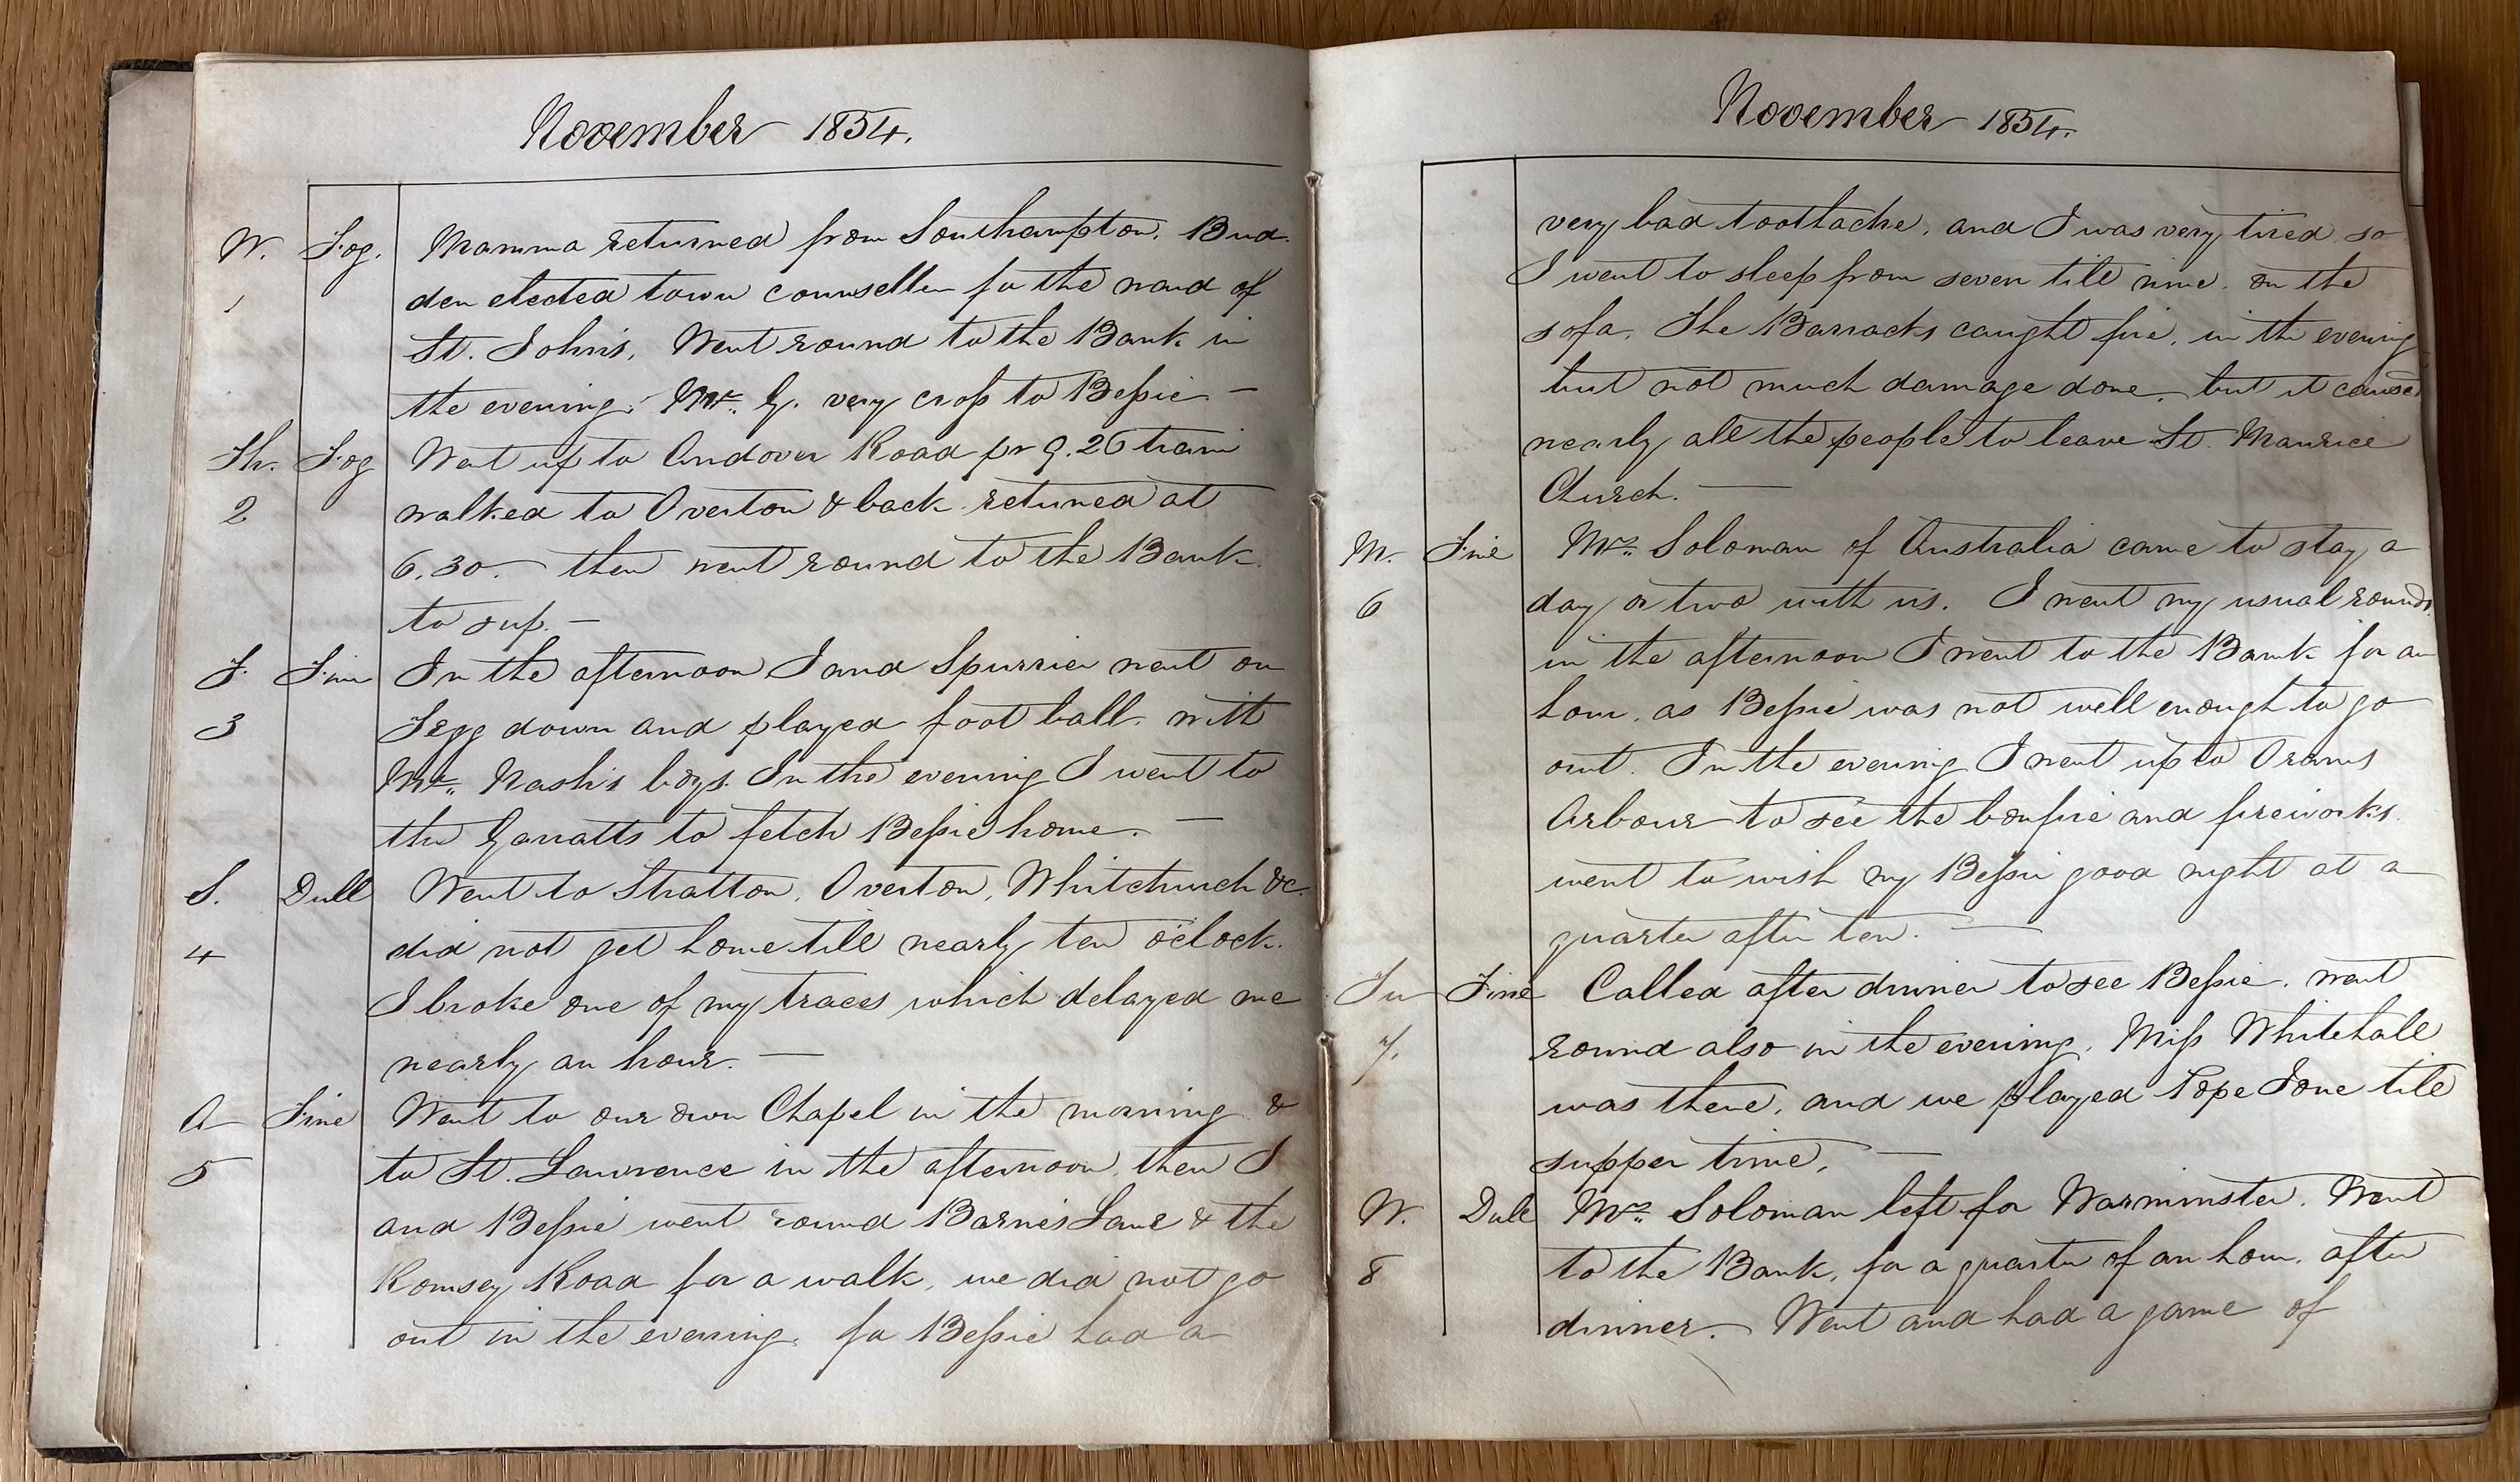 November 1854.
W. Fog. Mamma returned from Southampton. Bud-
1 den elected town counseller for the ward of
St. John's, Went round to the Bank in
the evening. Mr. G. very cross to Bessie —
Th. Fog Went up to Andover Road pr 9.26 train
2 walked to Overton & back returned at
6.30. then went round to the Bank
to sup. —
F. Fine In the afternoon I and Spurrier went on
3 Tegg down and played foot ball with
Mr. Nash's boys. In the evening I went to
the Garratts to fetch Bessie home. —
S. Dull Went to Stratton, Overton, Whitchurch &c.
4 did not get home till nearly ten o'clock.
I broke one of my traces which delayed me
nearly an hour. —
A Fine Went to our own Chapel in the morning &
5 to St. Lawrence in the afternoon, then I
and Bessie went round Barnes Lane & the
Romsey Road for a walk, we did not go
out in the evening. for Bessie had a
November 1854.
very bad toothache, and I was very tired so
I went to sleep from seven till nine. on the
sofa. The Barracks caught fire, in the evening
but not much damage done, but it caused
nearly all the people to leave St. Maurice
Church. —
M. Fine Mrs. Soloman of Australia came to stay a
6 day or two with us. I went my usual rounds.
in the afternoon I went to the Bank for an
hour, as Bessie was not well enough to go
out. In the evening I went up to Orams
Arbour to see the bonfire and fireworks.
went to wish my Bessie good night at a
quarter after ten. —
Tu Fine Called after dinner to see Bessie. went
7. round also in the evening. Miss Whitehall
was there, and we played Pope Jone till
supper time, —
W. Dull Mrs. Soloman left for Warminster. Went
8 to the Bank, for a quarter of an hour. after
dinner. Went and had a game of